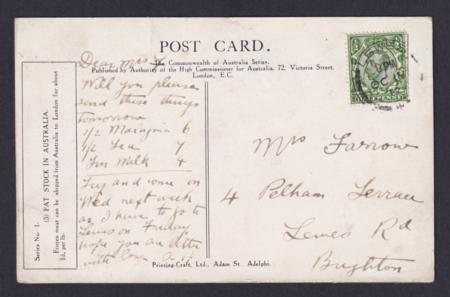 POST CARD.
The Commonwealth of Australia Series.
Published by Authority of the High Commissioner for Australia, 72, Victoria Street,
London, E.C.
Series No. 1.
(3) FAT STOCK IN AUSTRALIA.
Frozen meat can be shipped from Australia to London for about
1d. per lb.
Dear Mrs F
Will you please
send these things
tomorrow
1/2 Margarine 6
1/2 Tea 7
Tin Milk 4
Try and come in
Wed next week
as I have to go to
Lewes on Friday
hope you are
with love
Mrs Farrow
4 Pelham Terrace
Lewes Rd
Brighton
Printing-Craft, Ltd., Adam St. Adelphi.